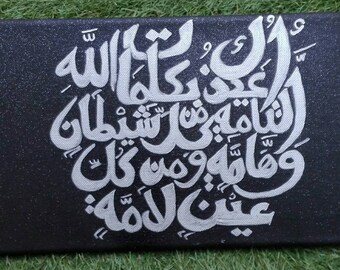 أعيذك بكلمات اللهِ
التامة من كل شيطانٍ
وَهَامَّةٍ ومن كل
عينٍ لامَّةٍ